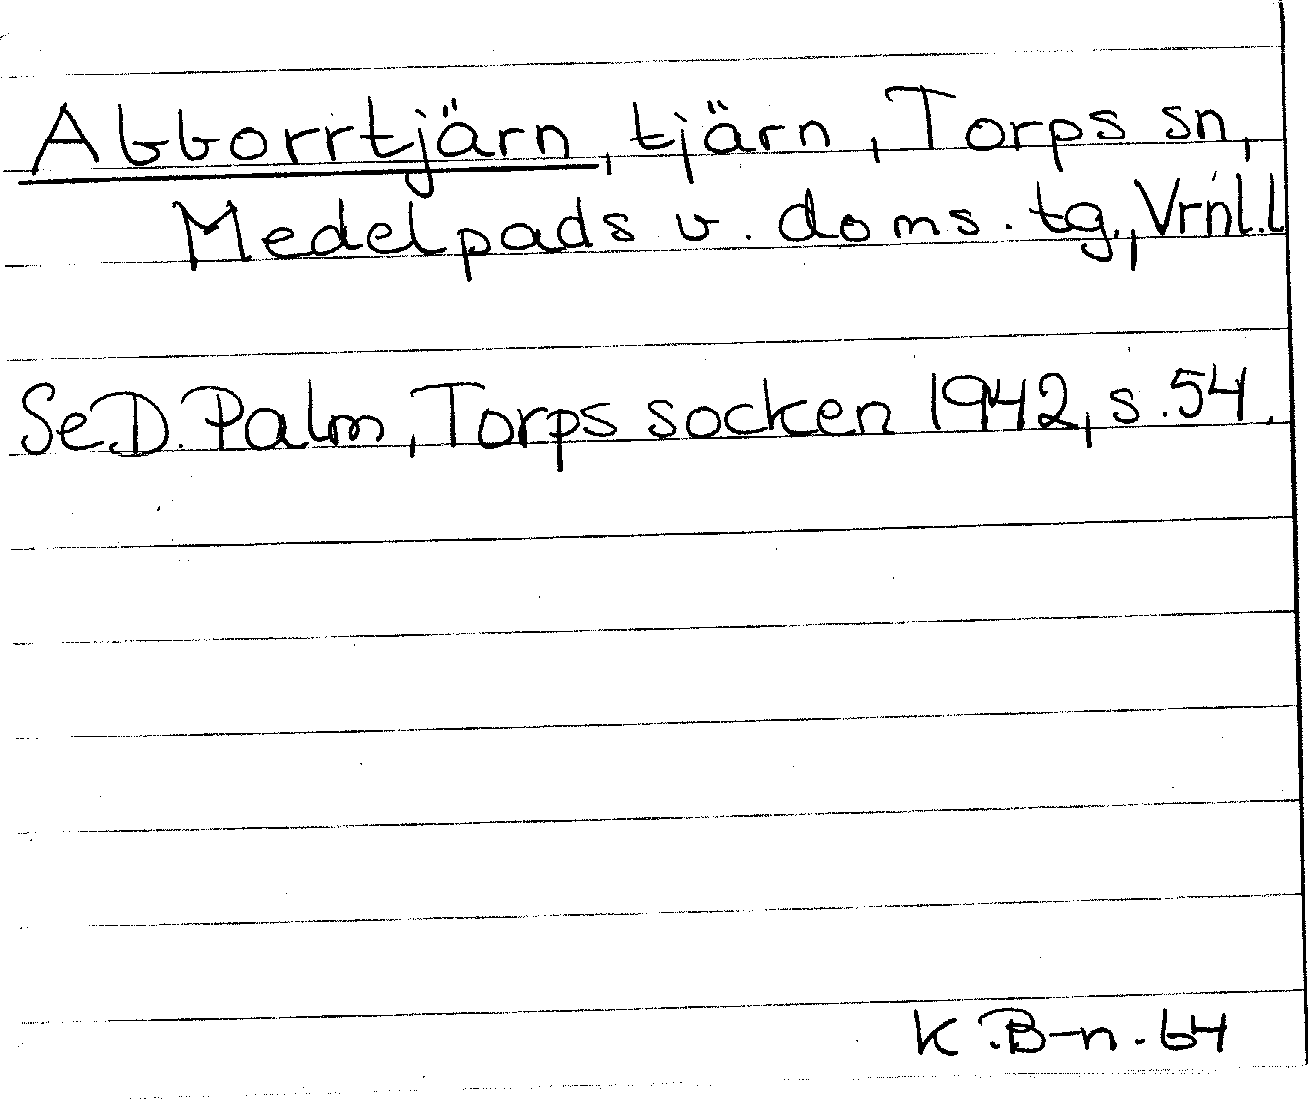 Abborrtjärn, tjärn, Torps sn,
Medelpads v. doms. tg., Vrnl.l
Se D. Palm, Torps socken 1942, s. 54.
K.B-n. 64